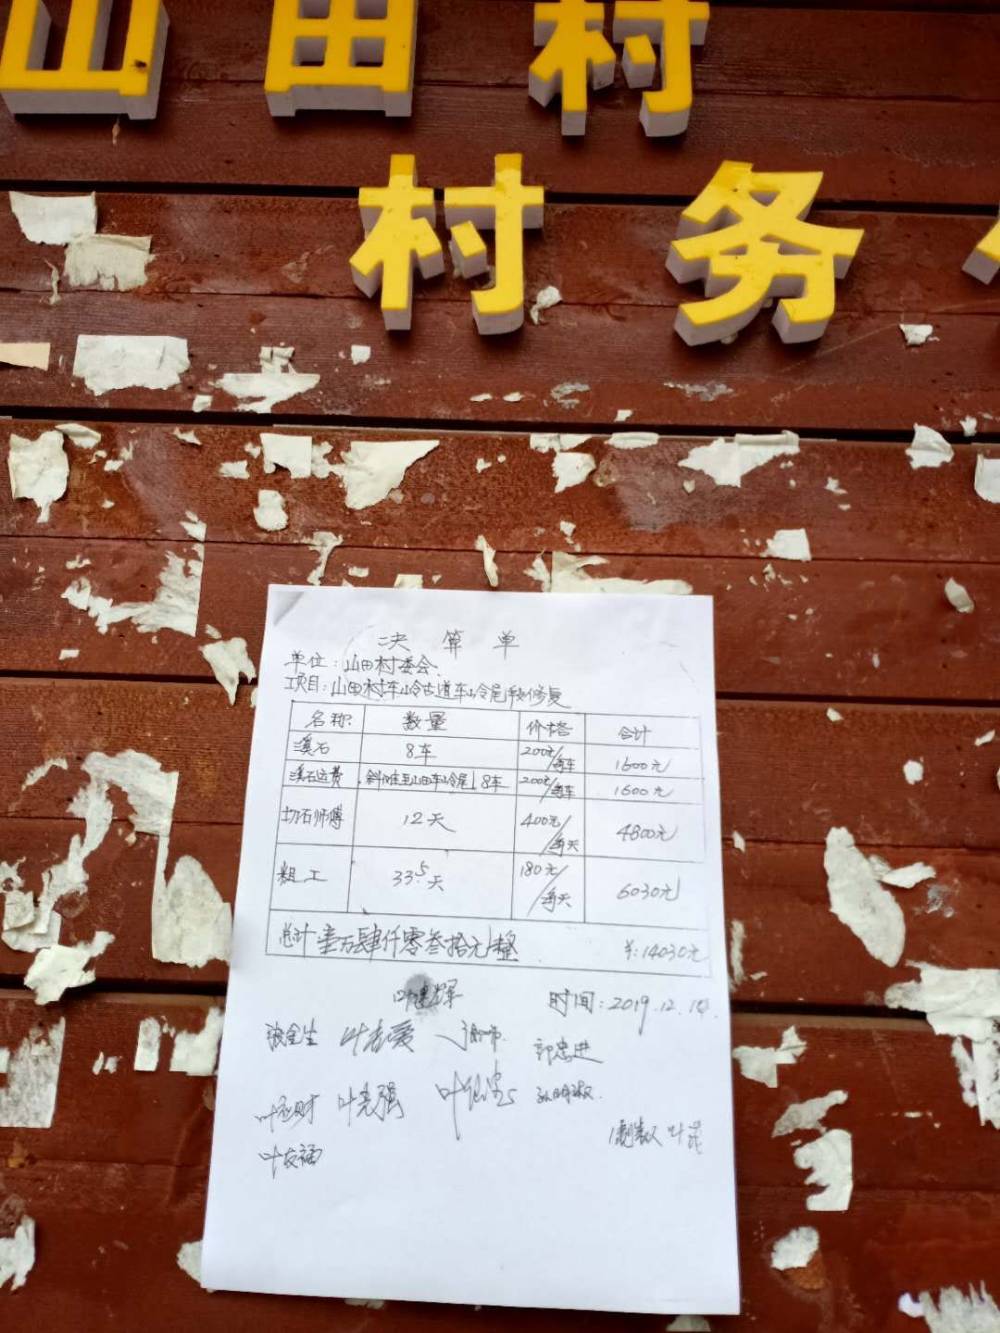 山田村
村务
决算单
单位:山田村委会
项目:山田村车岭古道车岭尾段修复
名称 数量 价格 合计
溪石 8车 200元/每车 1600元
溪石运费 至山田车岭尾 8车 200元/每车 1600元
切石师傅 12天 400元/每天 4800元
粗工 33.5天 180元/每天 6030元
总计 壹万肆仟零叁拾元整 ¥:14030元
时间:2019.12.10.
郭忠进
叶克强
叶友福